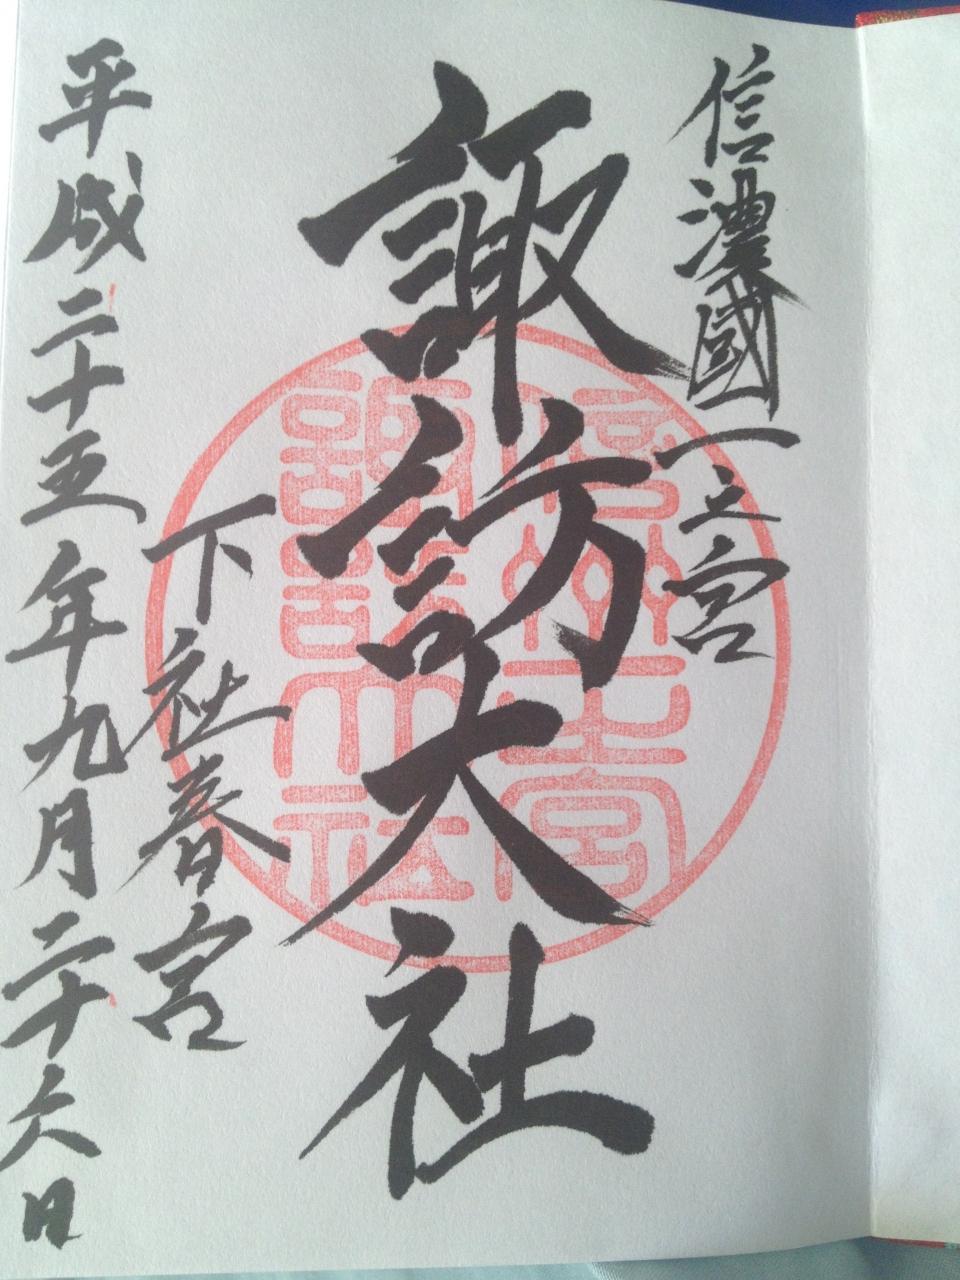 信濃國一之宮
諏訪大社
下社春宮
平成二十五年九月二十六日
信州一之宮
諏訪大社